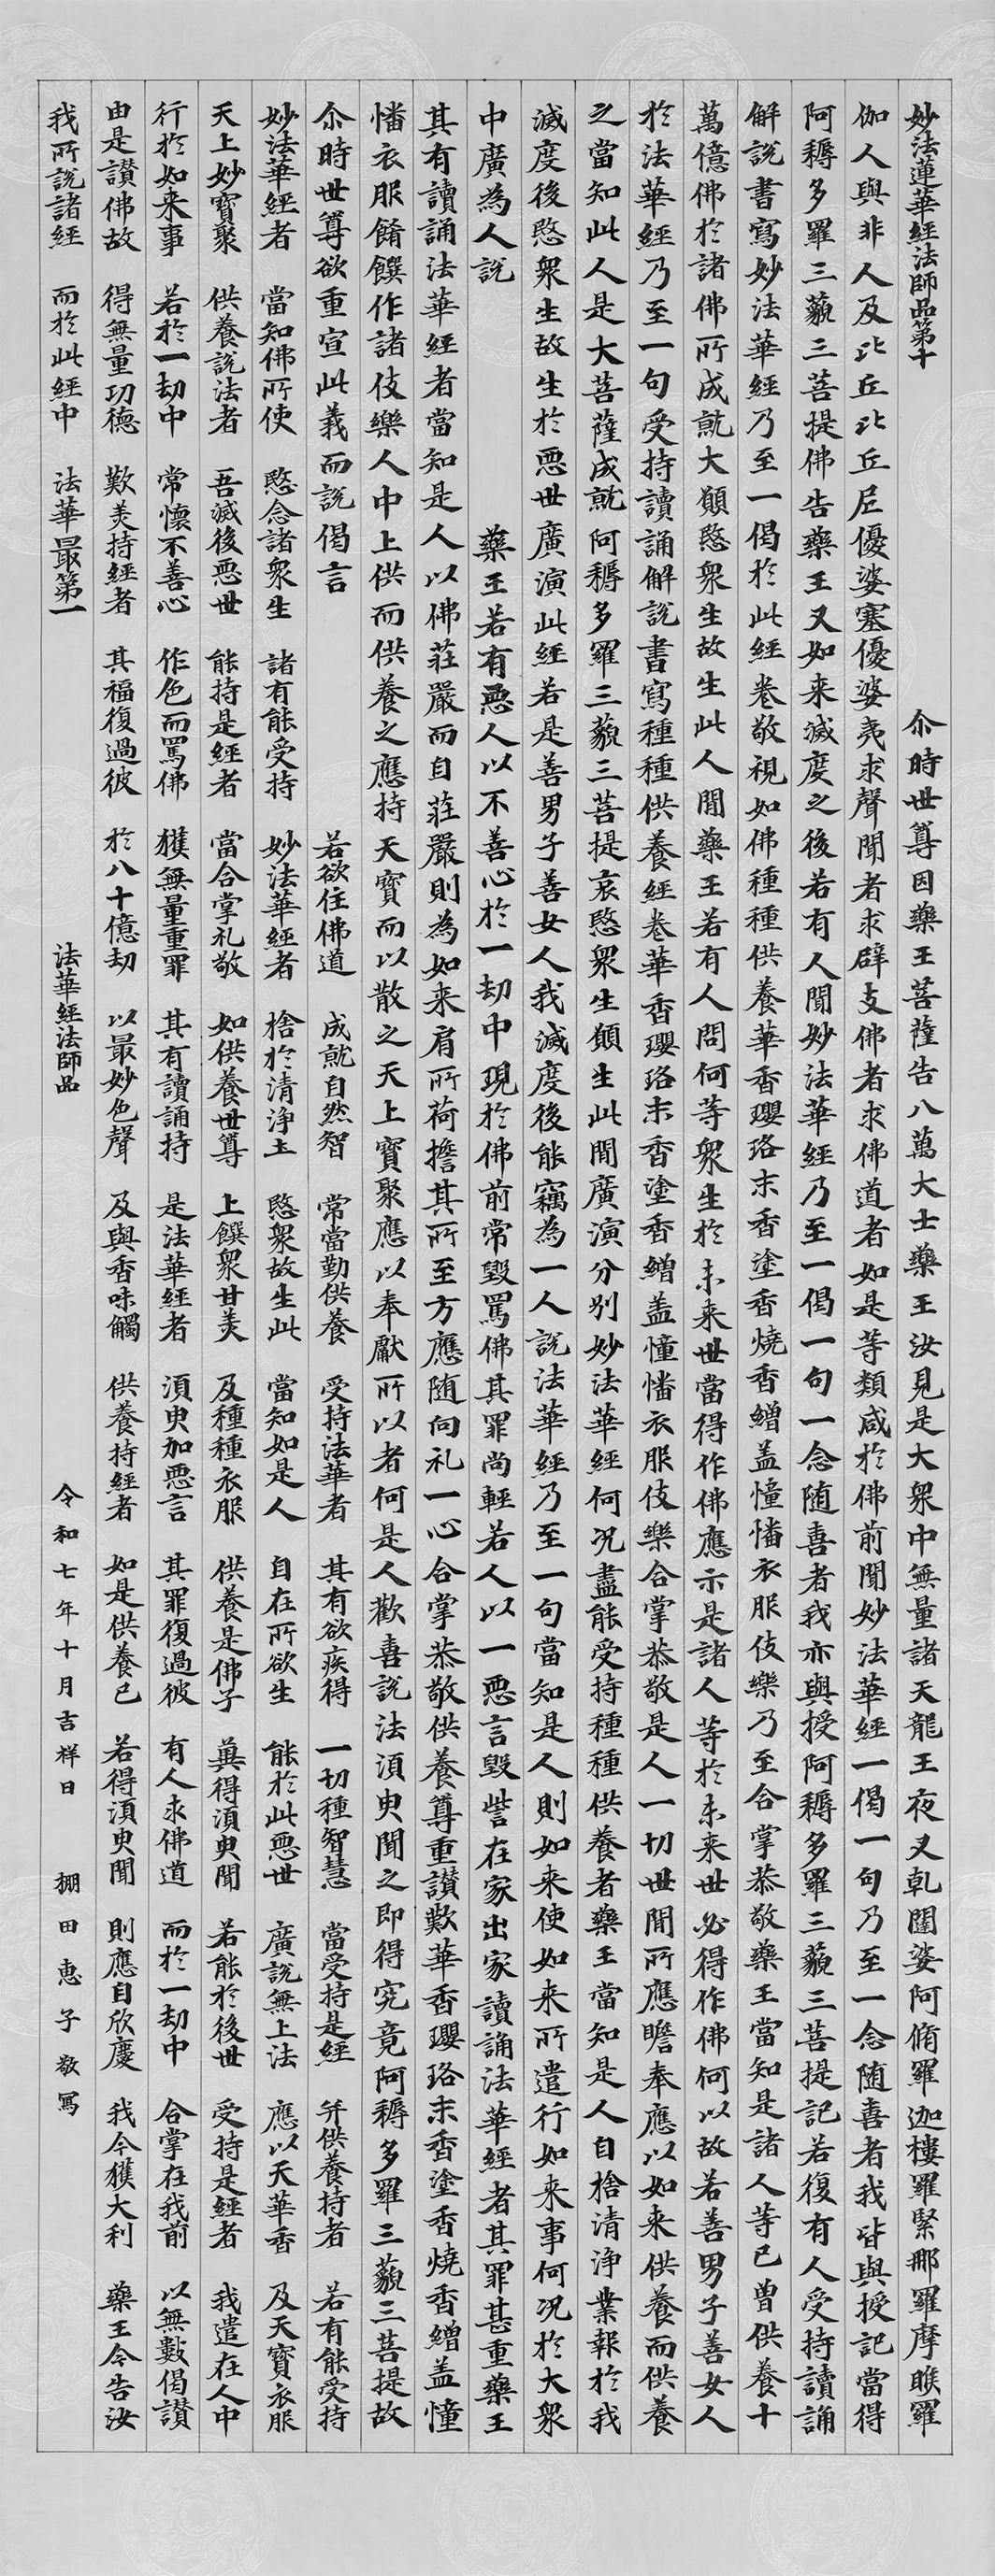 妙法蓮華經法師品第十 尒時世尊因藥王菩薩告八萬大士藥王汝見是大衆中無量諸天龍王夜叉乹闥婆阿脩羅迦樓羅緊那羅摩睺羅
伽人與非人及比丘比丘尼優婆塞優婆夷求聲聞者求辟支佛者求佛道者如是等類咸於佛前聞妙法華經一偈一句乃至一念随喜者我皆與授記當得
阿耨多羅三藐三菩提佛告藥王又如来滅度之後若有人聞妙法華經乃至一偈一句一念随喜者我亦與授阿耨多羅三藐三菩提記若復有人受持讀誦
解說書寫妙法華經乃至一偈於此經卷敬視如佛種種供養華香瓔珞末香塗香燒香繒盖憧幡衣服伎樂乃至合掌恭敬藥王當知是諸人等已曾供養十
萬億佛於諸佛所成就大願愍衆生故生此人間藥王若有人問何等衆生於未来世當得作佛應示是諸人等於未来世必得作佛何以故若善男子善女人
於法華經乃至一句受持讀誦解說書寫種種供養經卷華香瓔珞末香塗香繒盖憧幡衣服伎樂合掌恭敬是人一切世間所應瞻奉應以如来供養而供養
之當知此人是大菩薩成就阿耨多羅三藐三菩提哀愍衆生願生此間廣演分别妙法華經何况盡能受持種種供養者藥王當知是人自捨清浄業報於我
滅度後愍衆生故生於悪世廣演此經若是善男子善女人我滅度後能竊為一人說法華經乃至一句當知是人則如来使如来所遣行如来事何况於大衆
中廣為人說 藥王若有悪人以不善心於一劫中現於佛前常毀罵佛其罪尚輕若人以一悪言毀訾在家出家讀誦法華經者其罪甚重藥王
其有讀誦法華經者當知是人以佛莊嚴而自莊嚴則為如来肩所荷擔其所至方應随向礼一心合掌恭敬供養尊重讃歎華香瓔珞末香塗香燒香繒盖憧
幡衣服餚饌作諸伎樂人中上供而供養之應持天寶而以散之天上寶聚應以奉獻所以者何是人歡喜說法湏臾聞之即得究竟阿耨多羅三藐三菩提故
尒時世尊欲重宣此義而說偈言 若欲住佛道 成就自然智 常當勤供養 受持法華者 其有欲疾得 一切種智慧 當受持是經 并供養持者 若有能受持
妙法華經者 當知佛所使 愍念諸衆生 諸有能受持 妙法華經者 捨於清浄土 愍衆故生此 當知如是人 自在所欲生 能於此悪世 廣說無上法 應以天華香 及天寶衣服
天上妙寶聚 供養說法者 吾滅後悪世 能持是經者 當合掌礼敬 如供養世尊 上饌衆甘美 及種種衣服 供養是佛子 冀得湏臾聞 若能於後世 受持是經者 我遣在人中
行於如来事 若於一劫中 常懷不善心 作色而罵佛 獲無量重罪 其有讀誦持 是法華經者 湏臾加悪言 其罪復過彼 有人求佛道 而於一劫中 合掌在我前 以無數偈讃
由是讃佛故 得無量功德 歎美持經者 其福復過彼 於八十億劫 以最妙色聲 及與香味觸 供養持經者 如是供養已 若得湏臾聞 則應自欣慶 我今獲大利 藥王今告汝
我所說諸經 而於此經中 法華最第一 法華經法師品 令和七年十月吉祥日 棚田恵子敬写